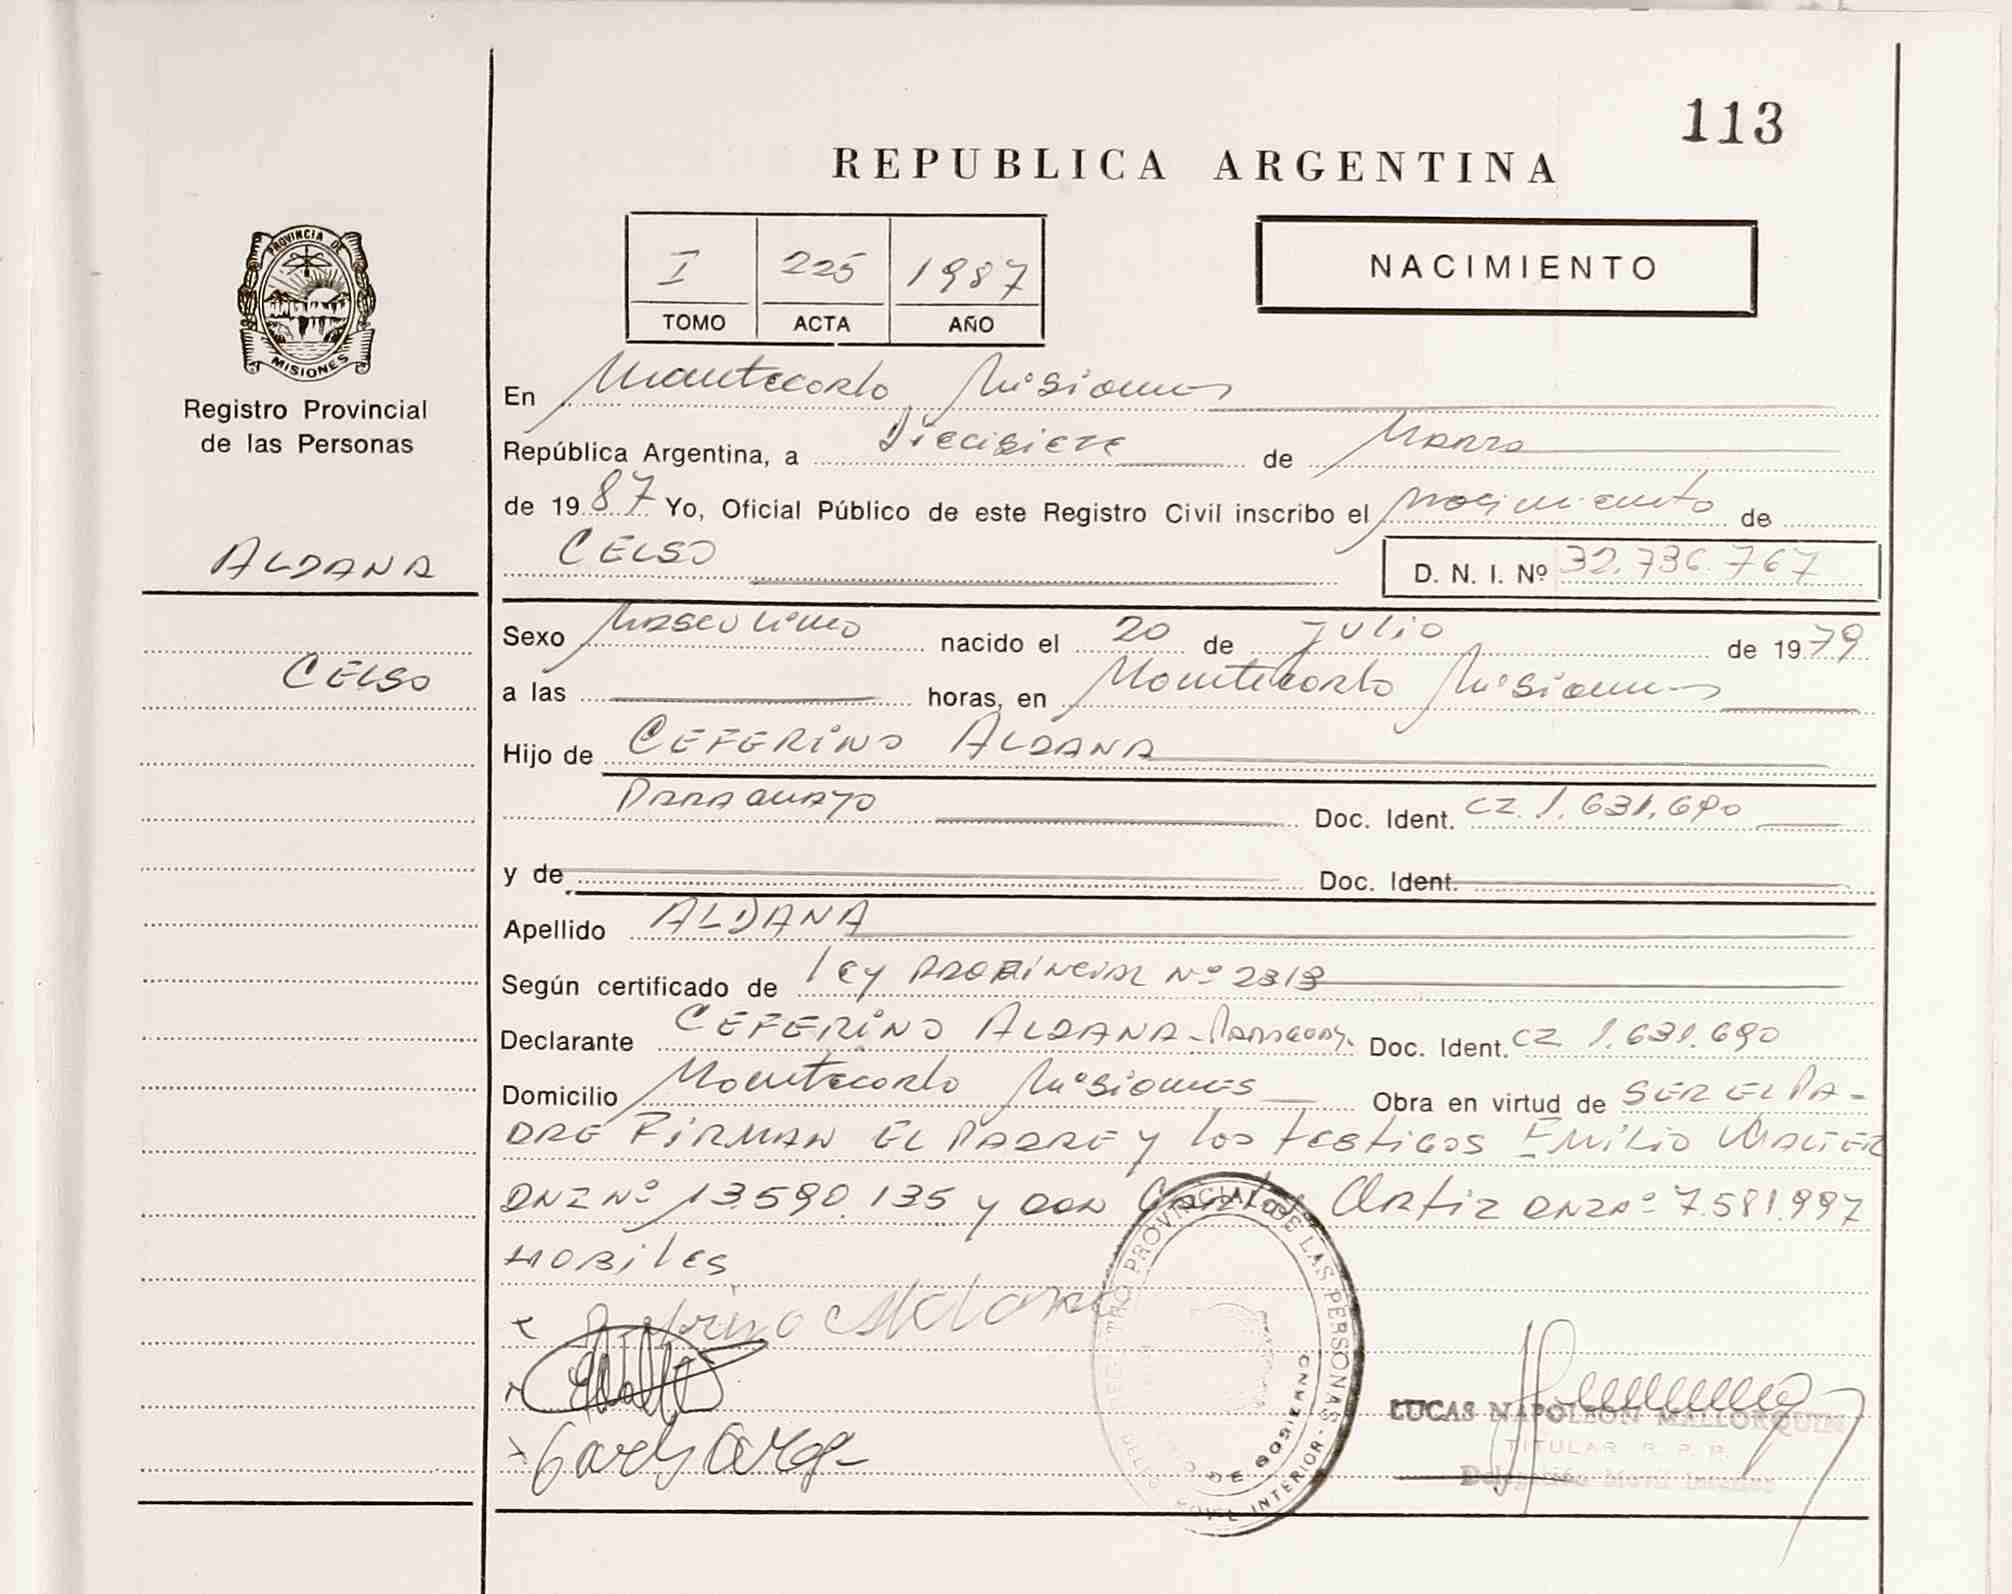 113
REPUBLICA ARGENTINA
PROVINCIA DE
MISIONES
Registro Provincial
de las Personas
ALDANA
CELSO
I 225 1987
TOMO ACTA AÑO
NACIMIENTO
En Montecarlo Misiones
República Argentina, a Diecisiete de Marzo
de 1987 Yo, Oficial Público de este Registro Civil inscribo el nacimiento de
CELSO D. N. I. Nº 32.736.767
Sexo Masculino nacido el 20 de Julio de 1979
a las horas, en Montecarlo Misiones
Hijo de CEFERINO ALDANA
PARAGUAYO Doc. Ident. CI. 1.631.690
y de Doc. Ident.
Apellido ALDANA
Según certificado de ley PROVINCIAL Nº 2313
Declarante CEFERINO ALDANA - Paraguay. Doc. Ident. CI 1.631.690
Domicilio Montecarlo Misiones Obra en virtud de SER EL PA-
DRE FIRMAN EL PADRE y los testigos EMILIO WALTER
DNI Nº 13.590.135 y con Ortiz DNI Nº 7.581.997
HOBILES
Aldana
REGISTRO PROVINCIAL DE LAS PERSONAS
DE GOBIERNO
MOVIL INTERIOR
LUCAS NAPOLEON MALLORQUIN
TITULAR R. P. P.
Delegación Movil Interior